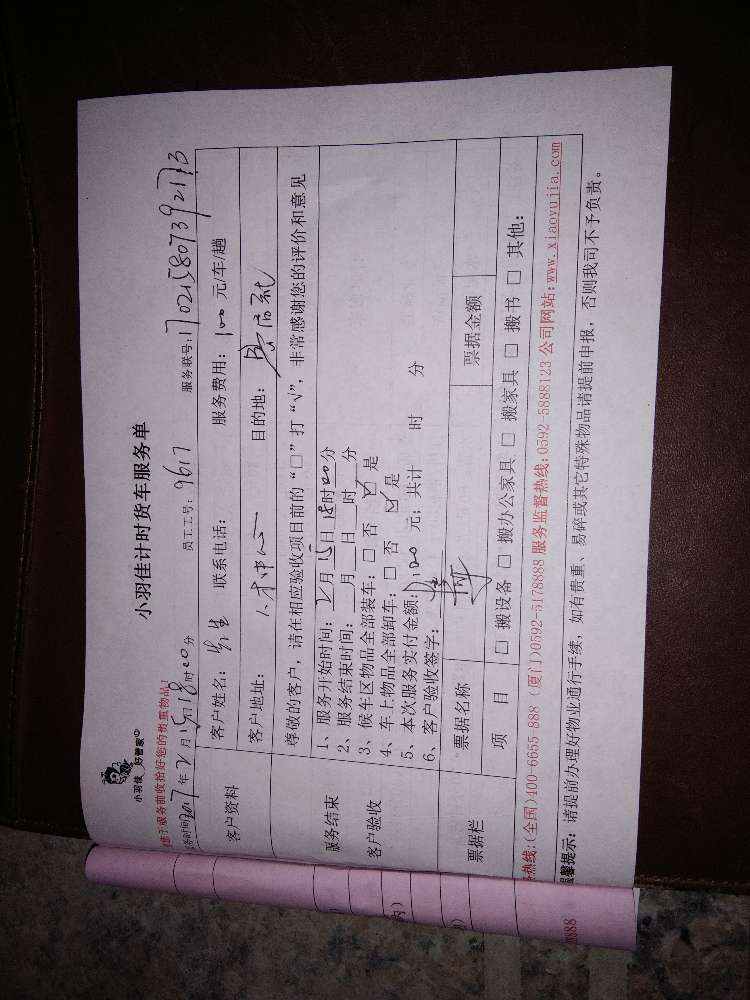 小羽佳 好管家
小羽佳计时货车服务单
请于服务前收拾好您的贵重物品!
服务时间2017年2月15日18时00分 员工工号: 9617 服务联号: 17021580739217
客户资料 客户姓名: 联系电话: 服务费用: 100 元/车/趟
客户地址: 目的地:
服务结束 客户验收
尊敬的客户，请在相应验收项目前的“□”打“√”，非常感谢您的评价和意见
1、服务开始时间: 2月15日18时00分
2、服务结束时间: 月 日 时 分
3、候车区物品全部装车: □ 否 ☑ 是
4、车上物品全部卸车: □ 否 ☑ 是
5、本次服务实付金额: 元; 共计 时 分
6、客户验收签字:
票据栏 票据名称 票据金额
项 目 □ 搬设备 □ 搬办公家具 □ 搬家具 □ 搬书 □ 其他:
热线:(全国)400-6655-888 (厦门)0592-5178888 服务监督热线:0592-5888123 公司网站:www.xiaoyujia.com
温馨提示: 请提前办理好物业通行手续, 如有贵重、易碎或其它特殊物品请提前申报, 否则我司不予负责。